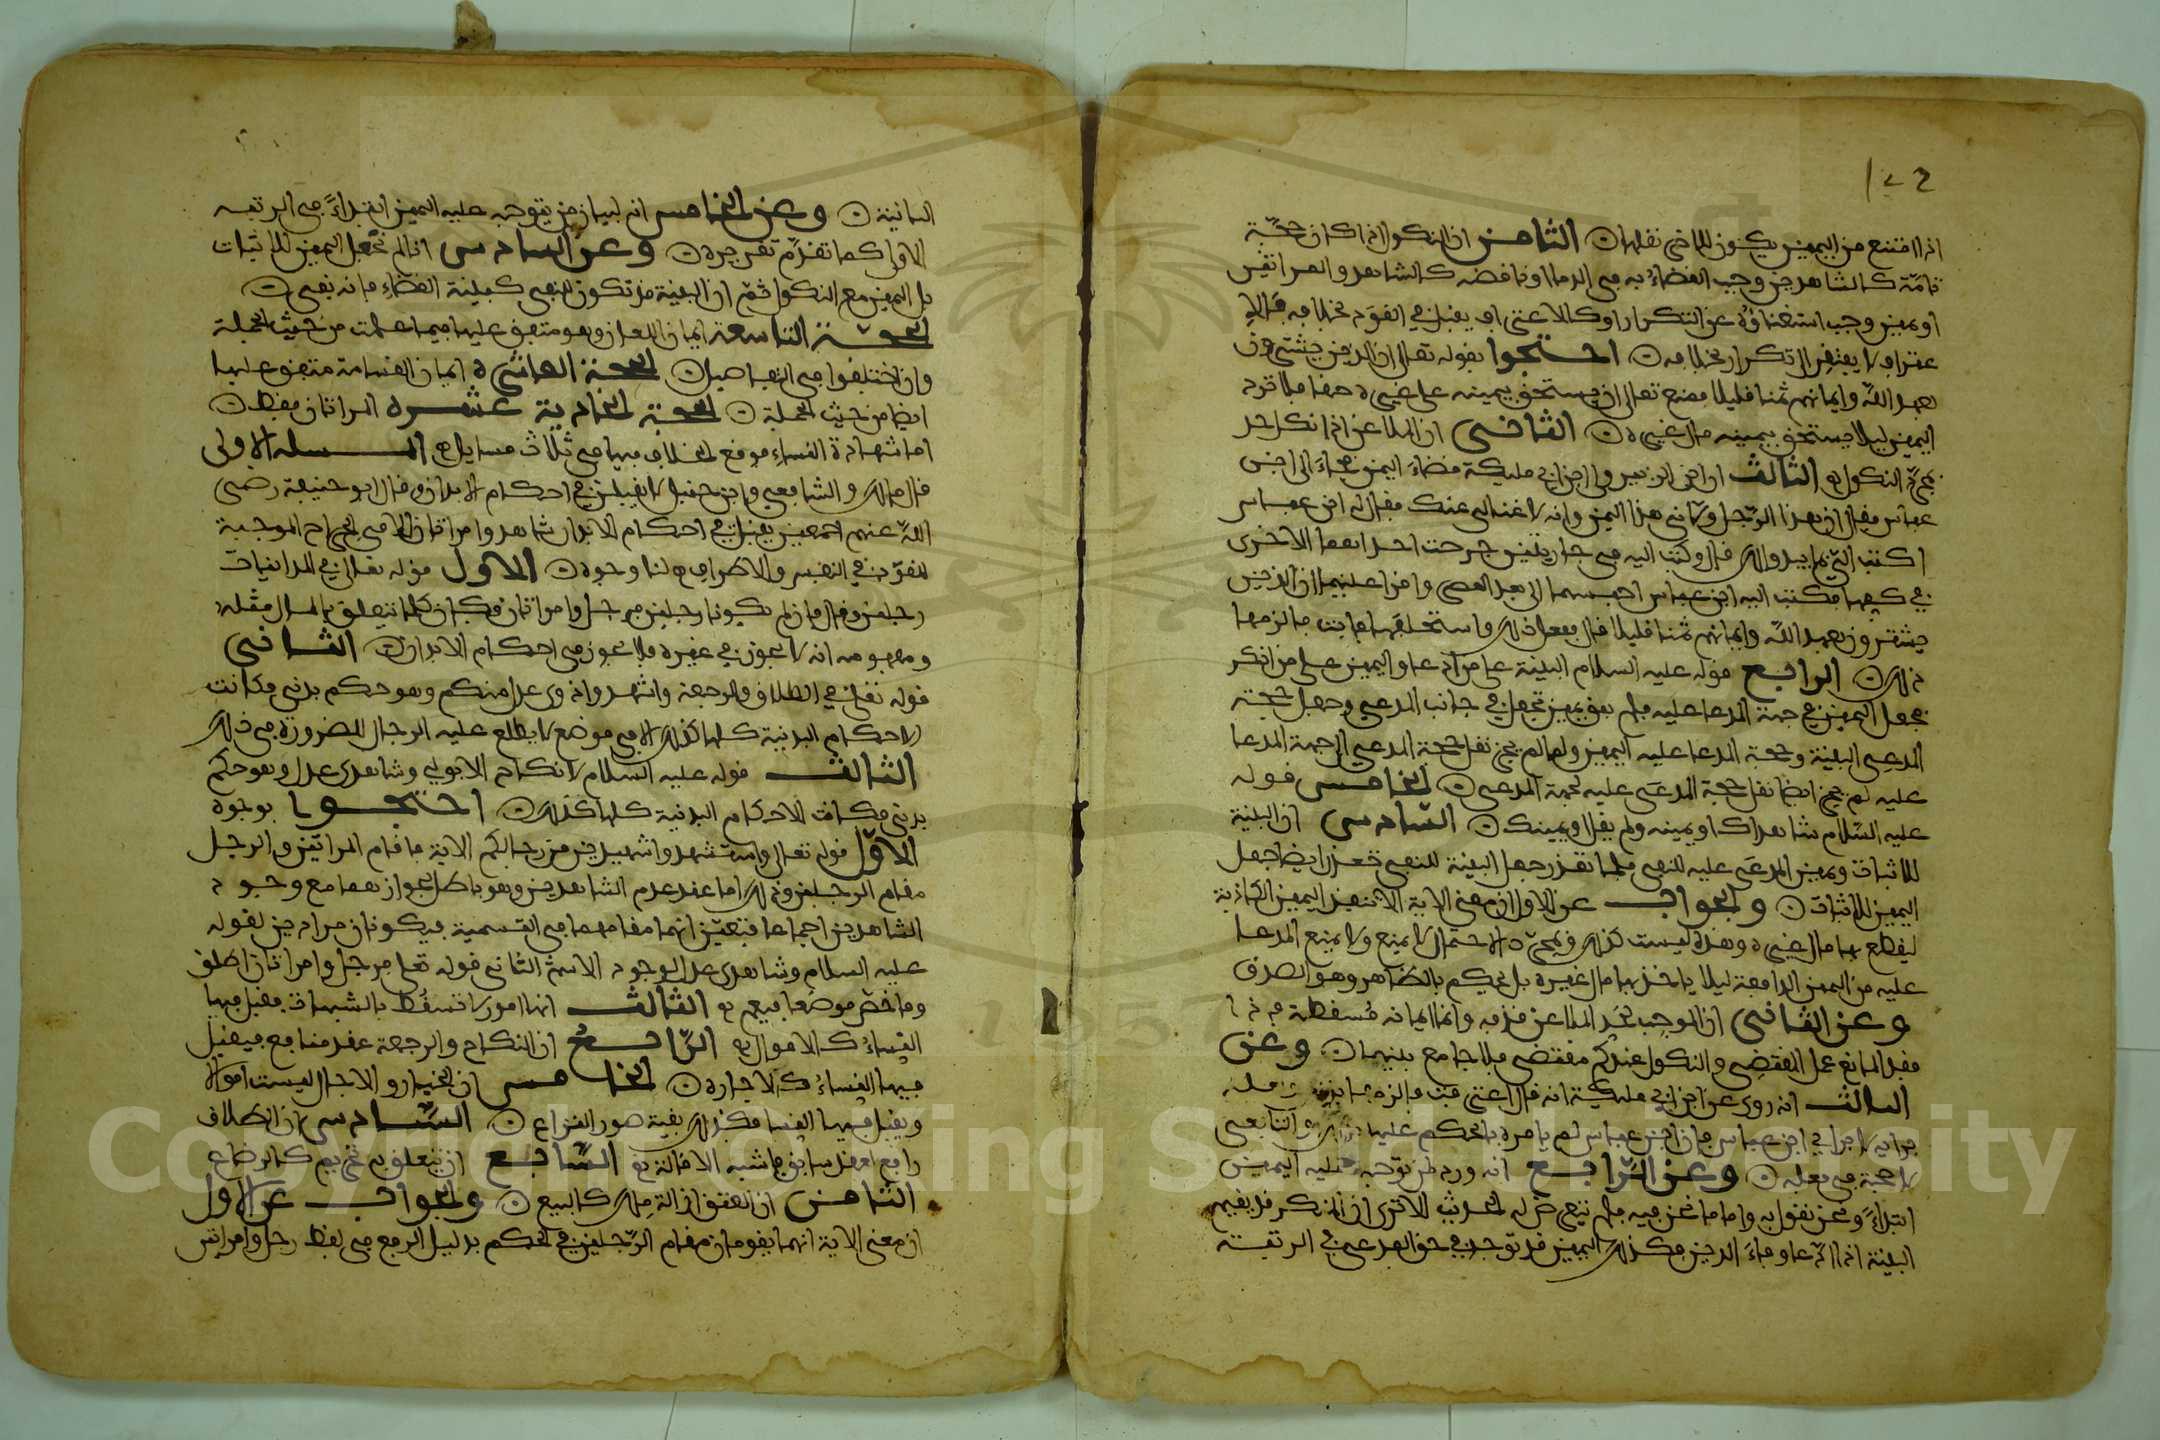 اذا امتنع من اليمين يكون للماضي نفلها ○ الثامن ان النكول اذا كان حجة
تامة كالشاهدين وجب القضاء به في الدما او ناقصه كالشاهد والمراتين
او يمين وجب استغناؤه عن التكرار او كالاعتراف يقبل في القود بخلافه فالا
عتراف لا يفتقر الى تكرار بخلافه ○ احتجوا بقوله تعالى ان الذين يشترون
بعهد الله وايمانهم ثمنا قليلا فمنع تعالى ان يستحق بيمينه على غيره حقا فلا ترد
اليمين ليلا يستحق بيمينه مال غيره ○ الثاني ان الملاعن اذا نكل حد
بمجرد النكول ○ الثالث ان ابن الزبير ولى ابن ابي مليكة قضاء اليمن فجاء الى ابن
عباس فقال ان هذا الرجل ولاني هذا اليمن وانه لا غنا لي عنك فقال له ابن عباس
اكتب الي بما يبدو لك قال وكتب اليه في جاريتين جرحت احداهما الاخرى
في كفها فكتب اليه ابن عباس احبسهما الى بعد العصر واقرا عليهما ان الذين
يشترون بعهد الله وايمانهم ثمنا قليلا قال ففعل ذلك واستحلفها فابت فالزمها
ذلك ○ الرابع قوله عليه السلام البينة على من ادعا واليمين على من انكر
فجعل اليمين في جهة المدعا عليه فلم يبق يمين تجعل في جانب المدعي وجعل حجة
المدعي البينة وحجة المدعا عليه اليمين ولما لم يجز نقل حجة المدعي الى جهة المدعا
عليه لم يجز ايضا نقل حجة المدعى عليه لجهة المدعي ○ الخامس قوله
عليه السلام شاهداك او يمينه ولم يقل او يمينك ○ السادس ان البينة
للاثبات ويمين المدعى عليه للنفي فلما تعذر جعل البينة للنفي تعذر ايضا جعل
اليمين للاثبات ○ والجواب عن الاول ان معنى الاية الا تنفذ اليمين الكاذبة
ليقطع بها مال غيره وهذه ليست كذلك ومجرد الاحتمال لا يمنع ولا يمنع المدعا
عليه من اليمين الدافعة ليلا ياخذ بها مال غيره بل يحكم بالظاهر وهو الصدق
وعن الثاني ان الموجب لحد الملاعن قذفه وانما ايمانه مسقطة فاذا
فقد المانع عمل المقتضي والنكول عندكم مقتضى فلا جامع بينهما ○ وعن
الثالث انه روى عن ابن ابي مليكة انه قال اعترفت فالزمها
برايه لا براي ابن عباس فان ابن عباس لم يامره بالحكم عليها والتابعي
لا حجة في فعله ○ وعن الرابع انه ورد فمن توجه عليه اليمين
ابتداء ونحن نقول به واما ما نحن فيه فلم يتعرض له الحديث الا ترى ان المنكر قد يقيم
البينة اذا ادعا وفاء الدين فكذلك اليمين قد توجد في حق المدعي في الرتبة
الثانية ○ وعن الخامس انه لبيان من يتوجه عليه اليمين ابتداء في الرتبة
الاولى كما تقدم تقريره ○ وعن السادس انا لم نجعل اليمين للاثبات
بل اليمين مع النكول ثم ان البينة قد تكون للنفي كبينة القضاء فانه نفي ○
الحجة التاسعة ايمان اللعان وهو متفق عليها فيما علمت من حيث الجملة
وان اختلفوا في التفاصيل ○ الحجة العاشرة ايمان القسامة متفق عليها
ايضا من حيث الجملة ○ الحجة الحادية عشرة المراتان فقط ○
اما شهادة النساء فوقع الخلاف فيها في ثلاث مسايل ○ المسلة الاولى
قال مالك والشافعي وابن حنبل لا يقبلن في احكام الابدان وقال ابو حنيفة رضي
الله عنهم اجمعين يقبل في احكام الابدان شاهد وامراتان الا في الجراح الموجبة
للقود في النفس والاطراف لنا وجوه ○ الاول قوله تعالى في المداينات
رجلين وقال فان لم يكونا رجلين فرجل وامراتان فكان كلما يتعلق بالمال مثله
ومفهومه انه لا يجوز في غيره فلا يجوز في احكام الابدان ○ الثاني
قوله تعالى في الطلاق والرجعة واشهدوا ذوي عدل منكم وهو حكم بدني فكانت
الاحكام البدنية كلها كذلك الا في موضع لا يطلع عليه الرجال للضرورة في ذلك
الثالث قوله عليه السلام لا نكاح الا بولي وشاهدى عدل وهو حكم
بدني فكانت الاحكام البدنية كلها كذلك ○ احتجوا بوجوه
الاول قوله تعالى واستشهدوا شهيدين من رجالكم الاية فاقام المراتين والرجل
مقام الرجلين وذلك اما عند عدم الشاهدين وهو باطل لجوازهما مع وجود
الشاهدين اجماعا فتعين انهما مقامهما في التسمية فيكونان مرادين لقوله
عليه السلام وشاهدى عدل لوجود الاسم الثاني قوله تعلى فرجل وامراتان اطلق
وما خص موضعا فيعم ○ الثالث انها امور لا تسقط بالشبهات فقبل فيها
النساء كالاموال ○ الرابع ان النكاح والرجعة عقد منافع فيقبل
فيهما النساء كالاجارة ○ الخامس ان الخيار والاجال ليست اموالا
ويقبل فيها النسا فكذلك بقية صور النزاع ○ السادس ان الطلاق
رافع لعقد سابق فاشبه الاقالة ○ السابع ان يتعلق به تحريم كالرضاع
الثامن ان العتق ازالة ملك كالبيع ○ والجواب عن الاول
ان معنى الاية انهما يقومان مقام الرجلين في الحكم بدليل الرفع في لفظ رجل وامراتين